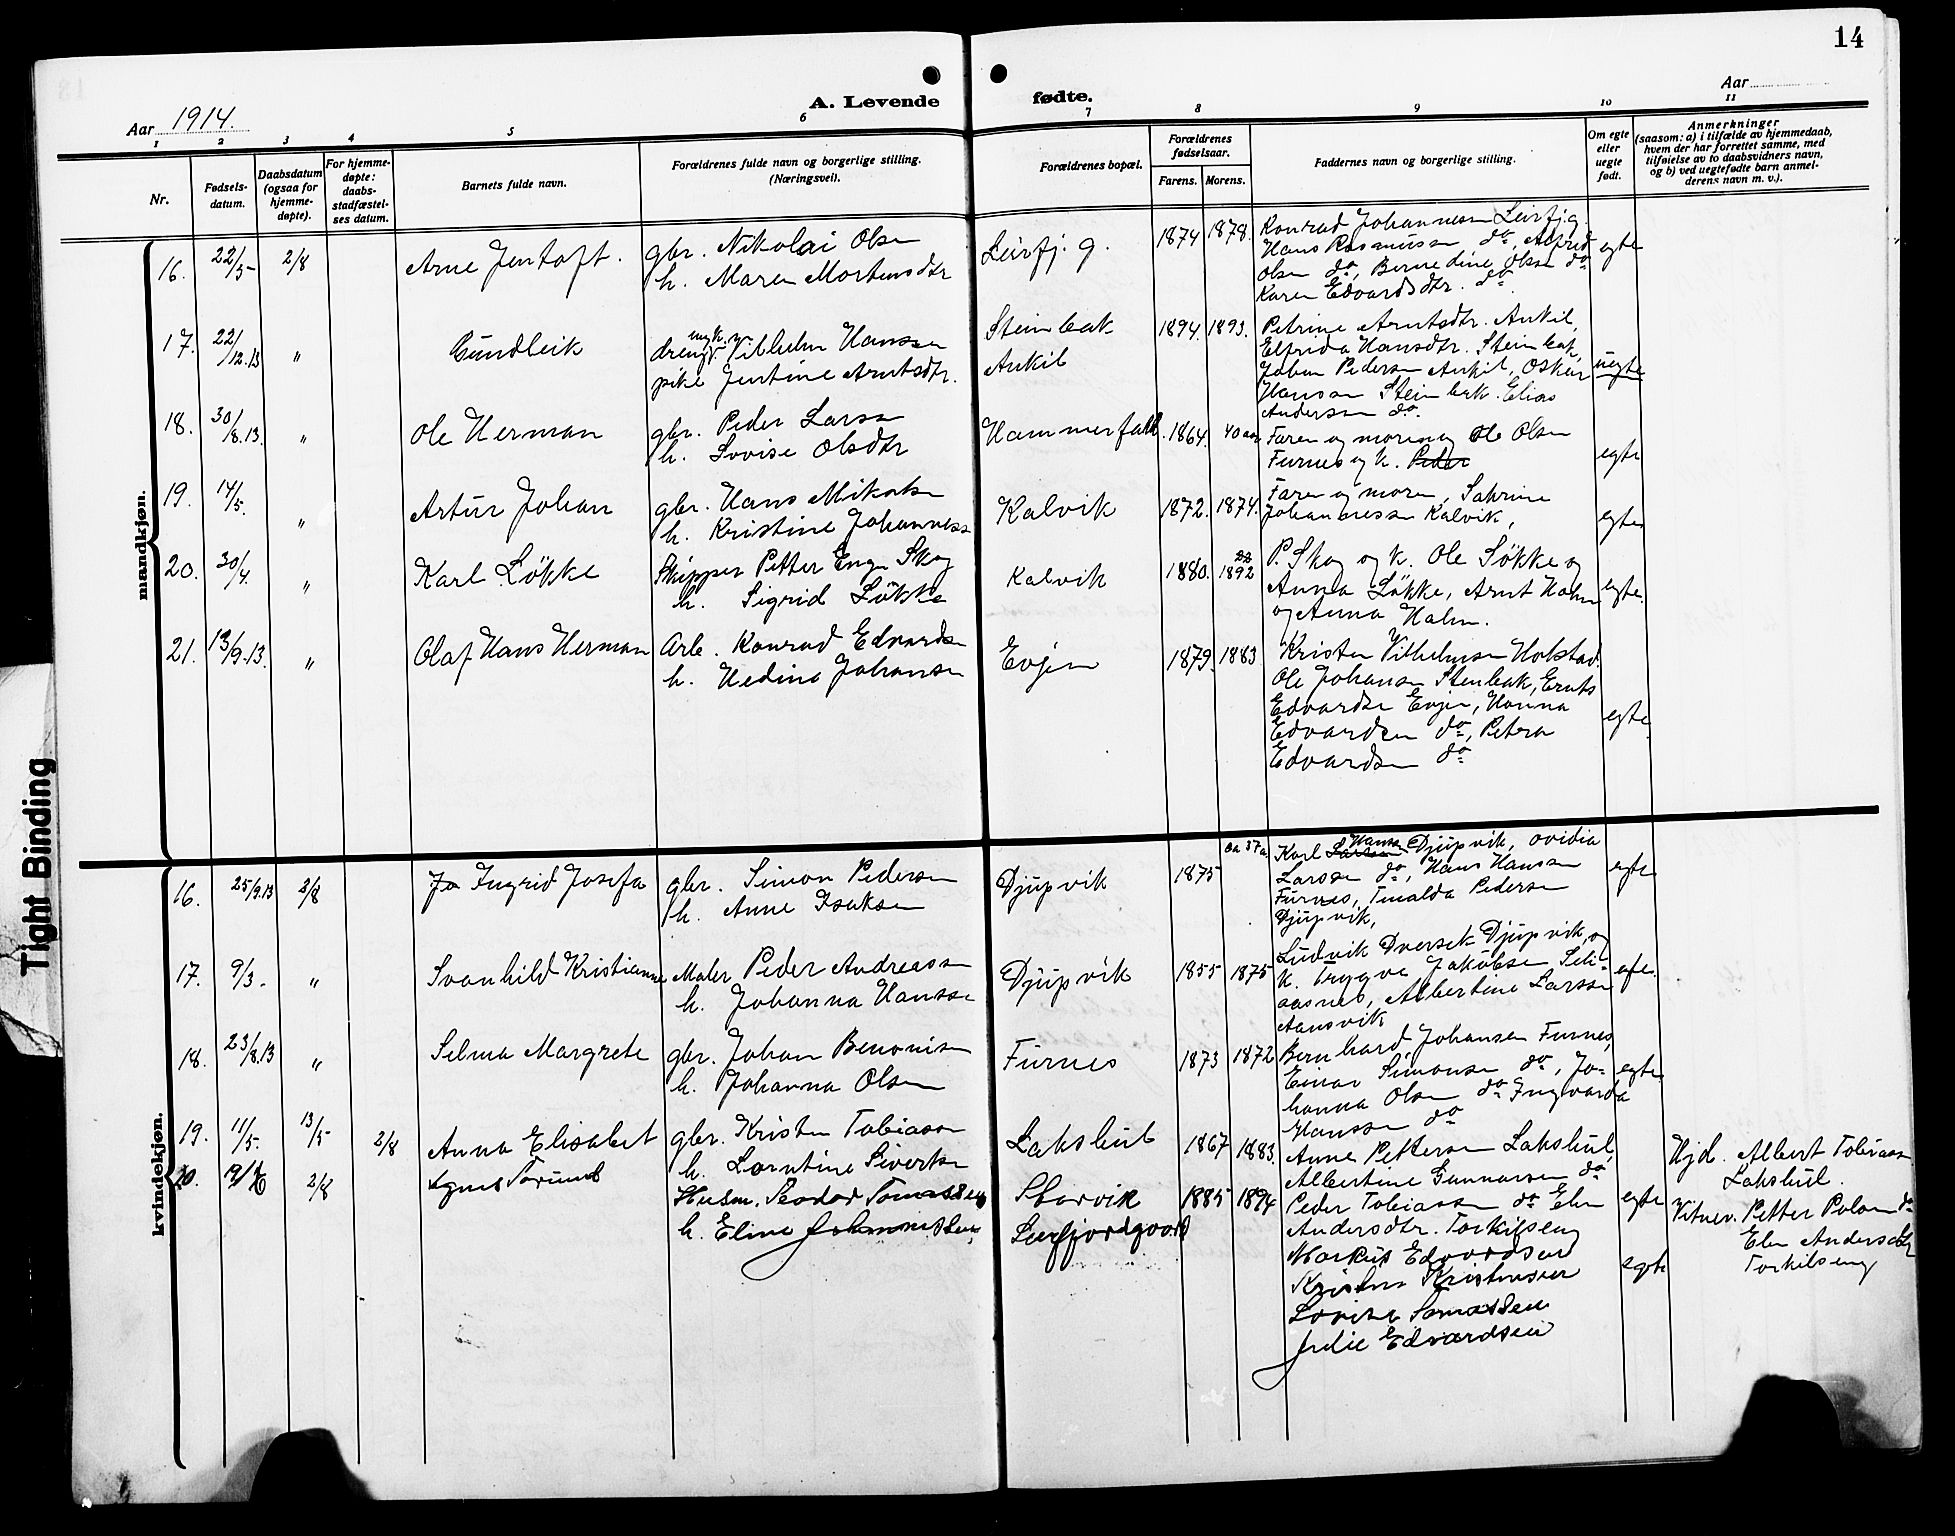 14
Aar 1914. A. Levende fødte. Aar
1 2 3 4 5 6 7 8 9 10 11
Nr.
Fødsels-
datum.
Daabsdatum
(ogsaa for
hjemme-
døpte).
For hjemme-
døpte:
daabs-
stadfæstel-
ses datum.
Barnets fulde navn.
Forældrenes fulde navn og borgerlige stilling.
(Næringsvei).
Forældrenes bopæl.
Forældrenes
fødselsaar.
Farens. Morens.
Faddernes navn og borgerlige stilling.
Om egte
eller
uegte
født.
Anmerkninger
(saasom: a) i tilfælde av hjemmedaab,
hvem der har forrettet samme, med
tilføielse av to daabsvidners navn,
og b) ved uegtefødte barn anmel-
derens navn m. v.).
mandkjøn.
16. 22/5 2/8 Arne Jentoft. gbr. Nikolai Olsen
h. Maren Mortensdtr
Leirfj. g. 1874 1878.
Konrad Johannesen Leirfj g.
Hans Rasmussen do, Alfred
Olsen do, Bernedine Olsen do
Karen Edvardsdtr. do.
egte
17. 22/12.13 " Gundleik
ungk.
dreng Vilhelm Hansen
pike Jentine Arntsdtr.
Steinbak
Ankil
1894. 1893.
Petrine Arntsdtr. Ankil,
Elfrida Hansdtr. Steinbak,
Johan Pedersen Ankil, Oskar
Hansen Steinbak. Elias
Andersen do.
uegte
18. 30/8.13. " Ole Herman gbr. Peder Larsen
h. Lovise Olsdtr
Hammerfald. 1864. 40 aar
Faren og moren og Ole Olsen
Furnes og h. Peder
egte
19. 14/5. " Artur Johan gbr. Hans Mikalsen
h. Kristine Johannessen
Kalvik 1872. 1874.
Faren og moren, Sabrine
Johannessen Kalvik,
egte
20. 30/4. " Karl Løkke Skipper Petter Eng. Skog
h. Sigrid Løkke
Kalvik 1880. 1892
P. Skog og h. Ole Løkke og
Anna Løkke, Arnt Holm
og Anna Holm.
egte.
21. 13/9.13. " Olaf Hans Herman Arb. Konrad Edvardsen
h. Hedina Johansen
Evjen 1879. 1883
Kristen Vilhelmsen Holstad.
Ole Johansen Stenbak, Ernts
Edvardsen Evjen, Hanna
Edvardsen do, Petra
Edvardsen do
egte
kvindekjøn.
16. 25/9.13 2/8 Jo Ingrid Josefa gbr. Simon Pedersen
h. Anne Isaksen
Djupvik 1875 ca 37 a.
Karl Larsen Hansen Djupvik, Ovidia
Larsen do, Hans Hansen
Furnes, Tinalda Pedersen
Djupvik,
egte
17. 9/3. " Svanhild Kristianne Maler Peder Andreassen
h. Johanna Hansen
Djupvik 1855 1875
Ludvik Dverset Djupvik, og
h. Trygve Jakobsen
aasnes, Albertine Larssen
Aansvik
egte.
18. 23/8.13 " Selma Margrete gbr. Johan Benonisen
h. Johanna Olsen
Furnes 1873 1872
Bernhard Johansen Furnes,
Einar Simonsen do, Jo-
hanna Olsen do Ingvarda
Hanssen do
egte.
19. 11/5. 13/5 2/8 Anna Elisabet gbr. Kristen Tobiassen
h. Lorntine Sivertsen
Lakshul 1867 1883.
Anne Pettersen Lakshul,
Albertine Gunnarsen do
Peder Tobiassen do Elen
Andersdtr. Torkilseng
egte
Hjd. Albert Tobiassen
Lakshul.
Vitner. Petter Polsen do
Elen Andersdtr
Torkilseng
20. 2/8 Agnes Torund Husm. Teodor Tomassen
h. Eline Johannessen
Storvik
Leirfjordgaard
1885 1894
Markus Edvardsen
Kristine Kristensen
Lovise Tomassen
Julie Edvardsen
egte
Tight Binding